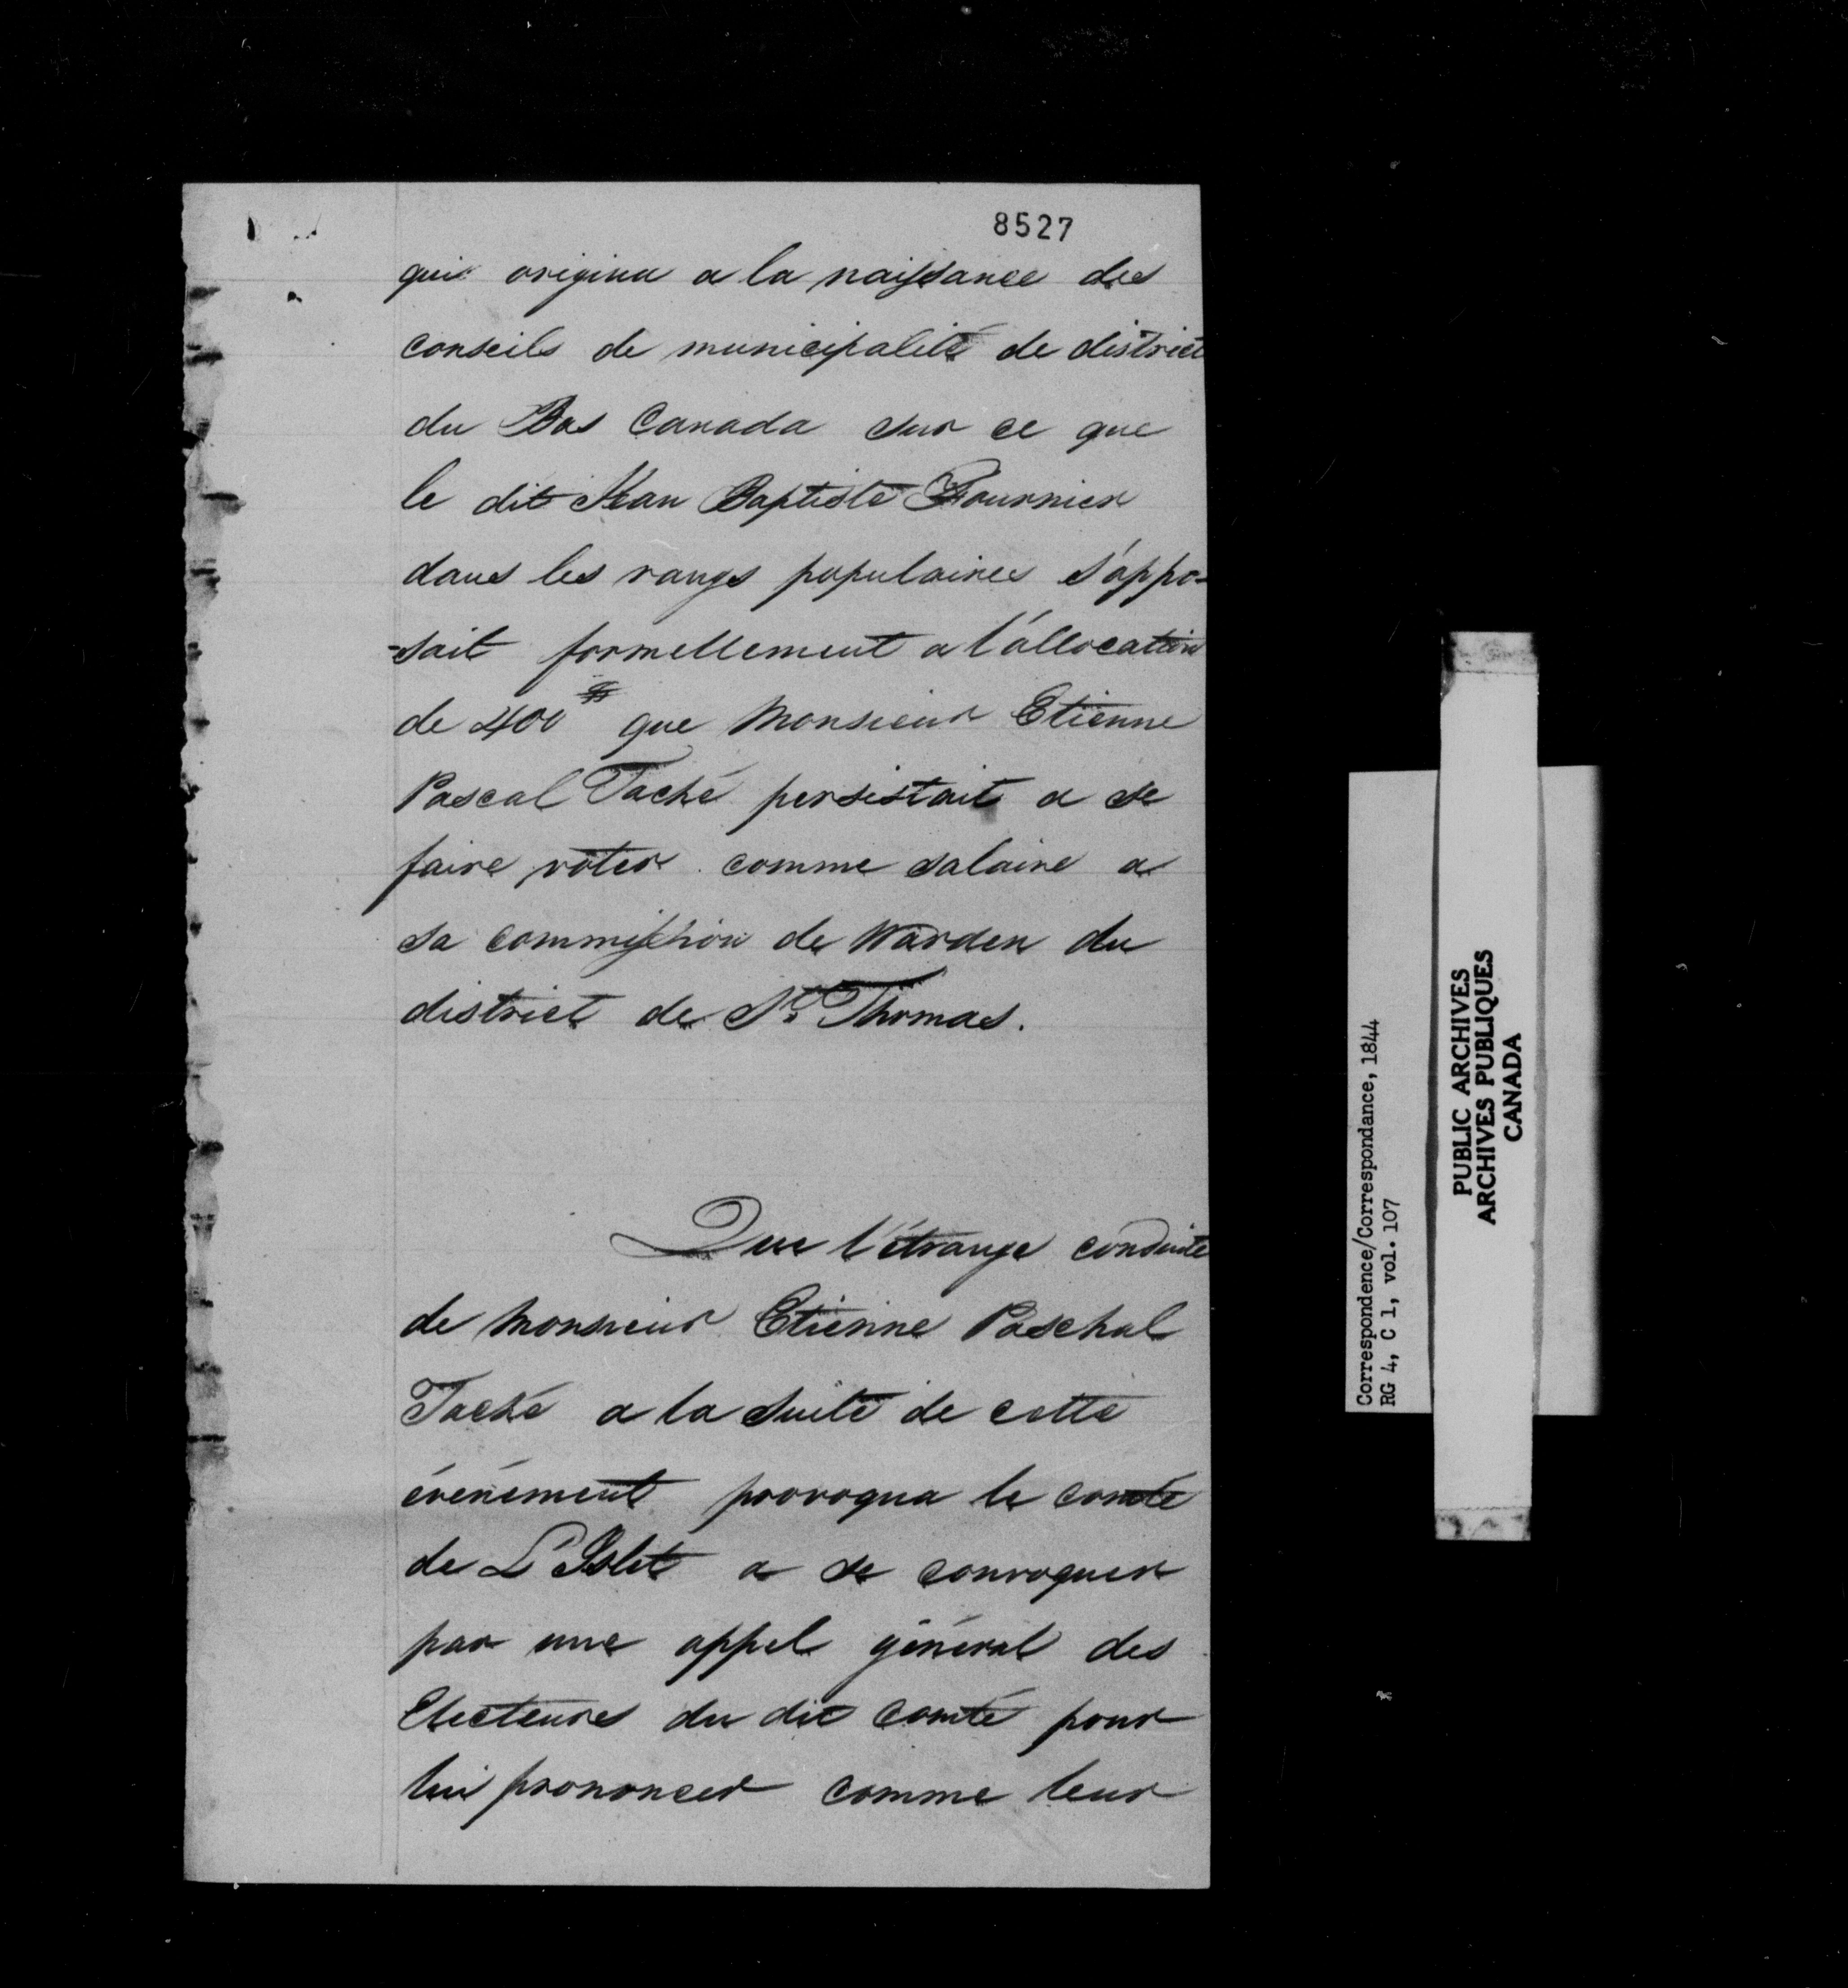 8527
qui origina a la naissance des
conseils de municipalité de district
du Bas Canada sur ce que
le dit Jean Baptiste Fournier
dans les rangs populaires s'oppo-
-sait formellement a l'allocation
de 400 que Monsieur Etienne
Pascal Taché persistait a se
faire voter comme salaire a
sa commission de Warden du
district de St Thomas.
Que l'étrange conduite
de Monsieur Etienne Paschal
Taché a la suite de cette
événement provoqua le comté
de L'Islet a se convoquer
par une appel général des
Electeurs du dit comté pour
lui prononcer comme leur
Correspondence/Correspondance, 1844
RG 4, C 1, vol. 107
PUBLIC ARCHIVES
ARCHIVES PUBLIQUES
CANADA